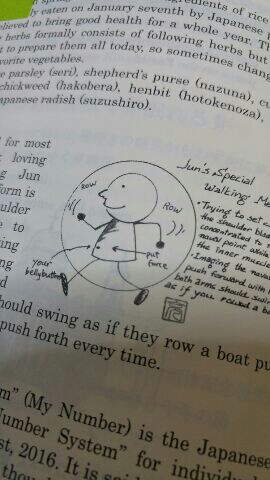 ingredients of rice
ly eaten on January seventh by Japanese
elieved to bring good health for a whole year. Th
herbs formally consists of following herbs but
t to prepare them all today, so sometimes chang
vorite vegetables.
e parsley (seri), shepherd's purse (nazuna), cu
chickweed (hakobera), henbit (hotokenoza),
apanese radish (suzushiro).
for most
loving
g Jun
form is
ulder
e to
ing
ed
d
Jun's Special
Walking Me
row
Row
put
force
your
bellybutton
Trying to set
the shoulder blad
concentrated to
navel point while
the inner muscle
Imaging the navel
push forward with
both arms should swing
as if you rowed a bo
hould swing as if they row a boat pu
push forth every time.
m" (My Number) is the Japanese
Number System" for individu
st, 2016. It is said
thou